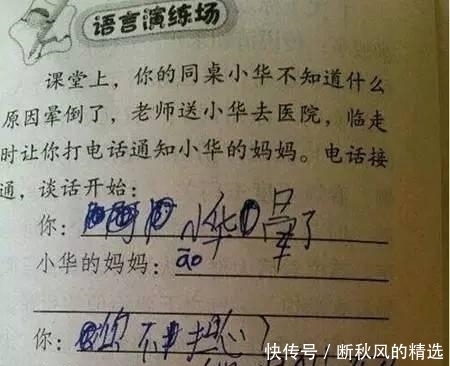 语言演练场
课堂上，你的同桌小华不知道什么
原因晕倒了，老师送小华去医院，临走
时让你打电话通知小华的妈妈。电话接
通，谈话开始：
你：阿 小华晕了
小华的妈妈：āo
你：你不要担心
快传号／断秋风的精选